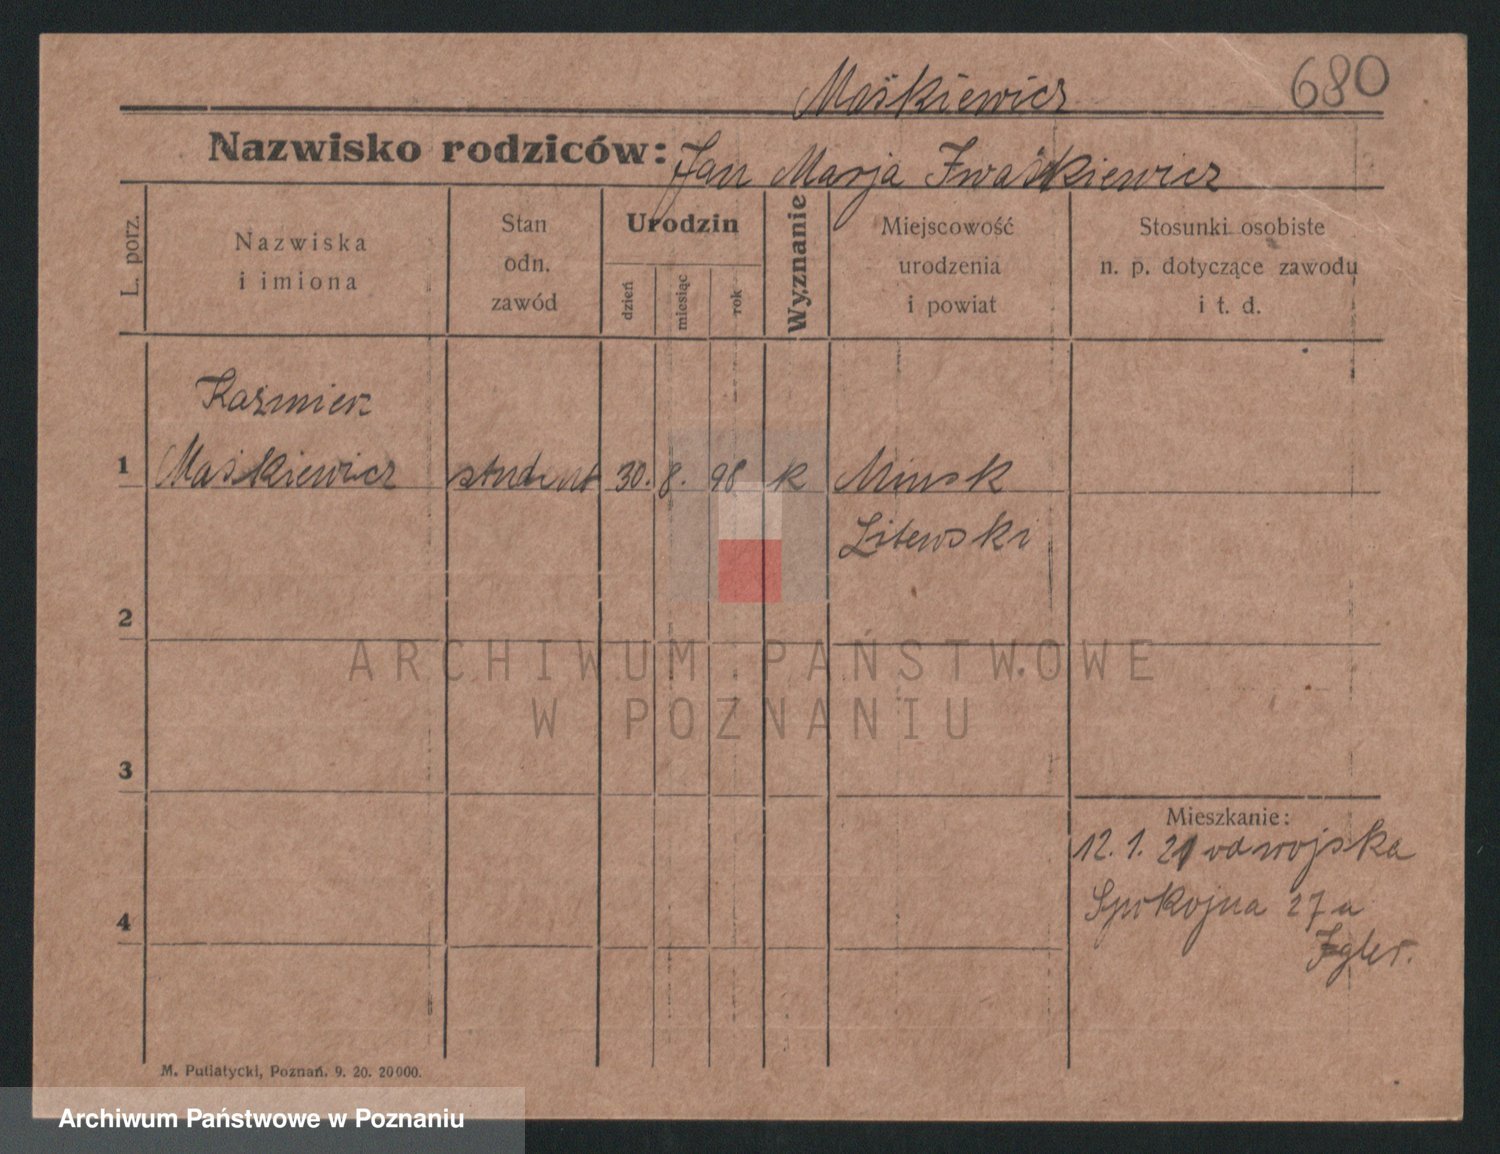 680
Maśkiewicz
Nazwisko rodziców: Jan Marja Iwaśkiewicz
L. porz.
Nazwiska
i imiona
Stan
odn.
zawód
Urodzin
dzień
miesiąc
rok
Wyznanie
Miejscowość
urodzenia
i powiat
Stosunki osobiste
n. p. dotyczące zawodu
i t. d.
Kaźmierz
1 Maśkiewicz student 30. 8. 98 k Minsk
Litewski
2
ARCHIWUM PAŃSTWOWE
W POZNANIU
3
Mieszkanie:
12. 1. 21 od wojska
Spokojna 27a
4
M. Putiatycki, Poznań. 9. 20. 20000.
Archiwum Państwowe w Poznaniu